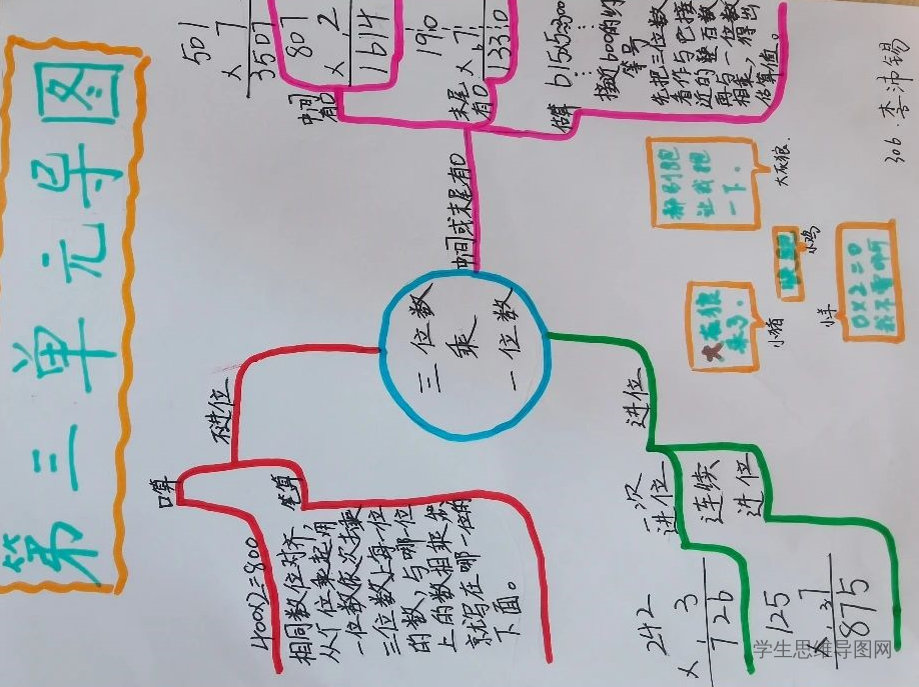 第三单元导图
三位数
乘
一位数
不进位
口算
400×2=800
笔算
相同数位对齐,
从个位乘起,用
一位数依次去乘
三位数上每一位
的数,与哪一位
上的数相乘,
就写在哪一位的
下面。
进位
一次
进位
242
× 3
726
连续
进位
125
× 7
875
中间或末尾有0
中间
有0
501
× 7
3507
807
× 2
1614
末尾
有0
190
× 7
1330
估算
615×5≈3000
接近600的时
等号
先把三位数
看作与它接
近的整百数
再与一位数
相乘,得出
估算值。
让我抱
一下。
大灰狼.
大灰狼
小猪
小鸡
小羊
0×2=0
306.李沛锡
学生思维导图网